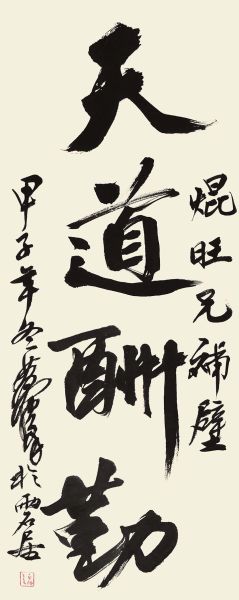 焜旺兄補壁
天道酬勤
甲子年冬 於